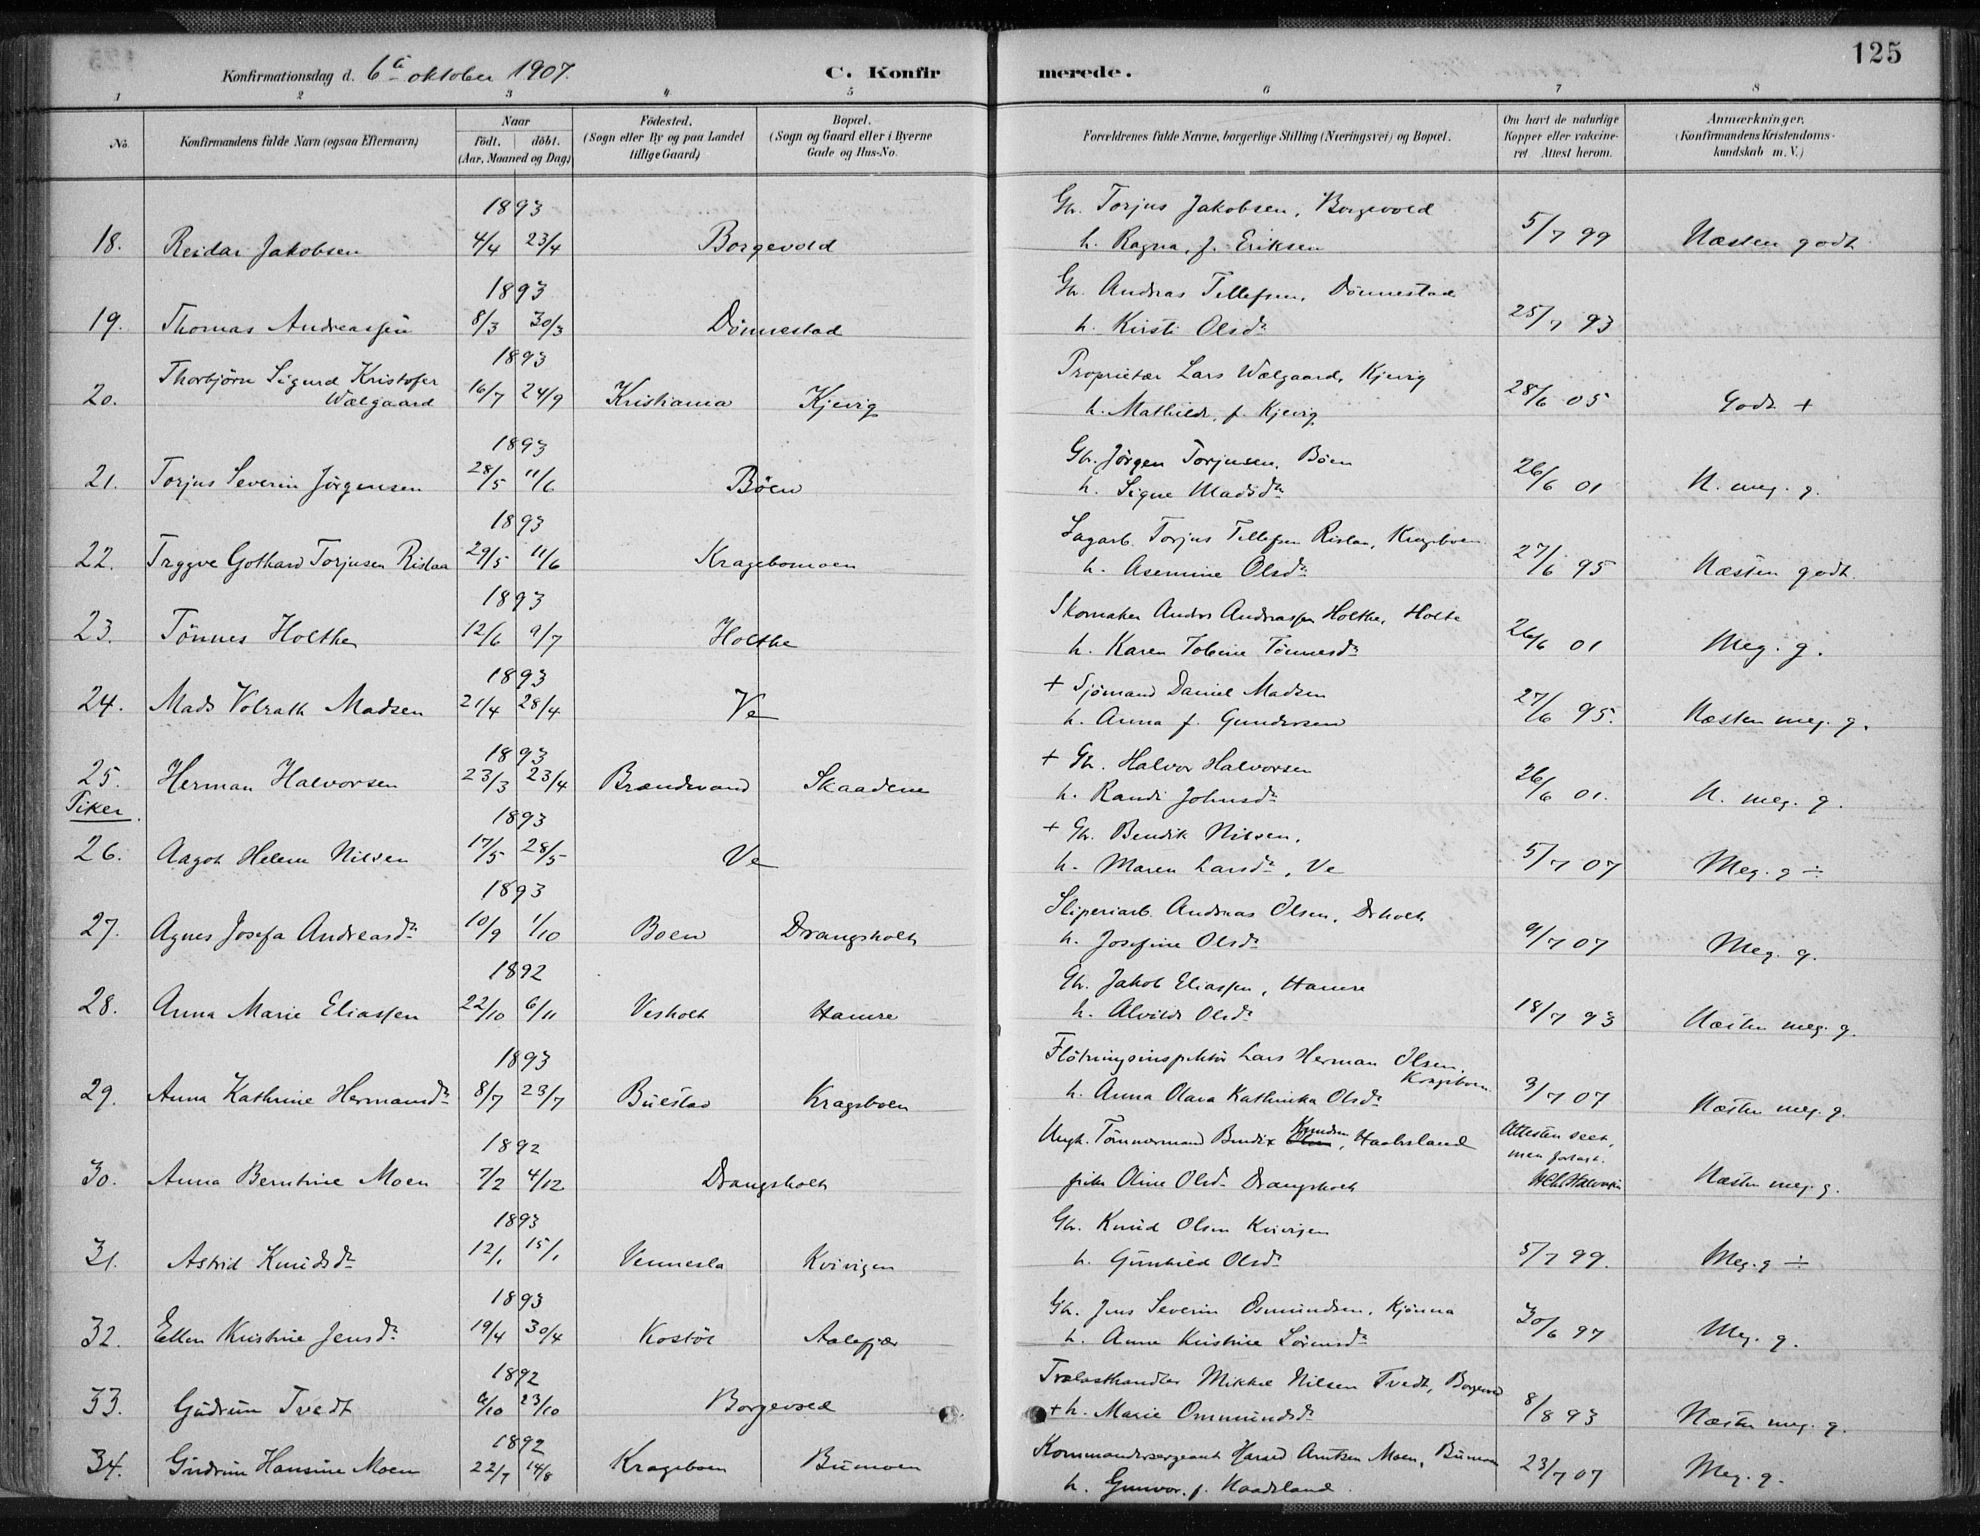 125
Konfirmationsdag d. 6te oktober 1907.
C. Konfirmerede.
1 2 3 4 5 6 7 8
No.
Konfirmandens fulde Navn (ogsaa Efternavn)
Naar
födt. döbt.
(Aar, Maaned og Dag)
Födested.
(Sogn eller By og paa Landet
tillige Gaard)
Bopæl.
(Sogn og Gaard eller i Byerne
Gade og Hus-No.
Forældrenes fulde Navne, borgerlige Stilling (Næringsvei) og Bopæl.
Om havt de naturlige
Kopper eller vakcine-
ret Attest herom.
Anmærkninger.
(Konfirmandens Kristendoms-
kundskab m. V.)
1893 Gb. Torjus Jakobsen, Borgevold
18. Reidar Jakobsen 4/4 23/4 Borgevold h. Ragna, f. Eriksen 5/7 99 Næsten godt
1893 Gb. Andreas Tellefsen, Dønnestad
19. Thomas Andreassen 8/3 30/3 Dønnestad h. Kirsti Olsdr 25/7 93
1893 Proprietær Lars Wælgaard, Kjevig
20. Thorbjørn Sigurd Kristofer Wælgaard 16/7 24/9 Kristiania Kjevig h. Mathilde, f. Kjevig 28/6 05 Godt +
1893 Gb. Jörgen Torjusen, Böen
21. Torjus Severin Jörgensen 28/5 11/6 Böen h. Signe Madsdr 26/6 01 N. meg. g.
1893 Sagarb. Torjus Tellefsen Rislaa, Krageboen
22. Tryggve Gothard Torjusen Rislaa 29/5 11/6 Kragebomoen h. Asemine Olsdr 27/6 95 Næsten godt.
1893 Skomaker Anders Andreassen Holthe, Holte
23. Tönnes Holthe 12/6 9/7 Holthe h. Karen Tobine Tönnesdr 26/6 01 Meg. g.
1893 + Sjömand Daniel Madsen
24. Mads Volrath Madsen 21/4 28/4 Ve h. Anna f. Gundersen 27/6 95. Næsten meg. g.
1893 + Gb. Halvor Halvorsen
25. Herman Halvorsen 23/3 23/4 Brændvand Skaadene h. Randi Johnsdr 26/6 01. N. meg. g.
Piker.
1893 + Gb. Bendik Nilsen,
26. Aagot Helene Nilsen 17/5 28/5 Ve h. Maren Larsdr, Ve 5/7 07 Meg. g ÷
1893 Sliperiarb. Andreas Olsen, Drholt
27. Agnes Josefa Andreasdr 10/9 1/10 Boen Drangsholt h. Josefine Olsdr 9/7 07 Meg. g.
1892 Gb. Jakob Eliassen, Hamre
28. Anna Marie Eliassen 22/10 6/11 Vesholt Hamre h. Alvilde Olsdr 18/7 93 Næsten meg. g.
1893 Flötningsinspektör Lars Herman Olsen, Krageboen
29. Anna Kathrine Hermansdr 8/7 23/7 Buestad Krageboen h. Anna Olava Kathinka Olsdr 3/7 07 Næsten meg. g.
1892 Ungk. Tömmermand Bendix Knudsen, Haabesland Attesten seet, men forlagt.
30. Anna Berntine Moen 7/2 4/12 Drangsholt Oline Olsdr Drangsholt Næsten meg. g.
1893 Gb. Knud Olsen Kvivigen
31. Astrid Knudsdr 12/1 15/1 Vennesla Kvivigen h. Gunhild Olsdr 5/7 99. Meg. g ÷
1893 Gb. Jens Severin Osmundsen, Kjönna
32. Ellen Kristine Jensdr 19/4 30/4 Kostöl Aalefjær h. Anne Kristine Sörensdr 30/6 97 Meg. g.
1892 Trælasthandler Mikkel Nilsen Tvedt, Borgevold
33. Gudrun Tvedt 6/10 23/10 Borgevold + h. Marie Ommundsdr 8/8 93 Næsten meg. g.
1892 Kommandersergeant Harald Arntsen Moen, Bumoen
34. Gudrun Hansine Moen 22/7 14/8 Krageboen Bumoen h. Gunvor f. Haadsland. 23/7 07 Meg. g.